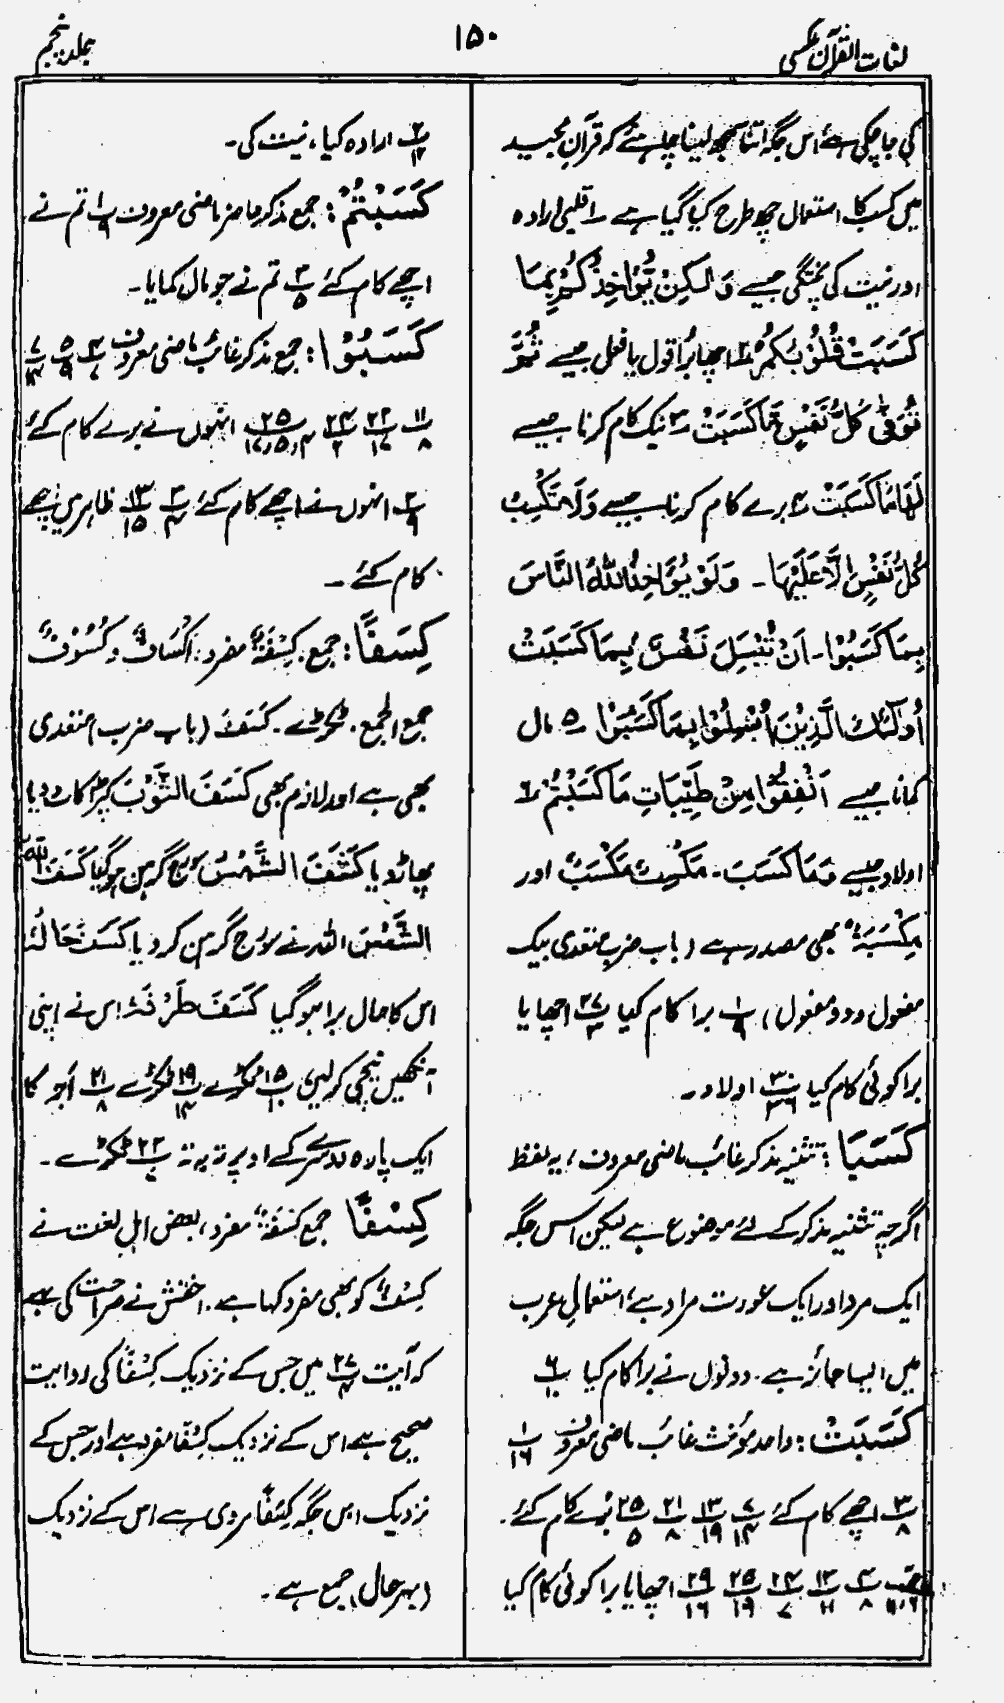 لغات القرآن عکسی
۱۵۰
جلد پنجم
کی جا چکی ہے اس جگہ اتنا سمجھ لینا چاہئے کہ قرآن مجید
میں کسب کا استعمال چھ طرح کیا گیا ہے ۱؎ قلبی ارادہ
اور نیت کی پختگی جیسے وَلٰكِنْ يُّؤَاخِذُكُمْ بِمَا
كَسَبَتْ قُلُوْبُكُمْ ۲؎ اچھا برا قول یا فعل جیسے ثُمَّ
تُوَفّٰى كُلُّ نَفْسٍ مَّا كَسَبَتْ ۳؎ نیک کام کرنا جیسے
لَهَا مَا كَسَبَتْ ۴؎ برے کام کرنا جیسے وَلَا تَكْسِبُ
كُلُّ نَفْسٍ اِلَّا عَلَيْهَا ۔ وَلَوْ يُؤَاخِذُ اللّٰهُ النَّاسَ
بِمَا كَسَبُوْا ۔ اَنْ تُبْسَلَ نَفْسٌ بِمَا كَسَبَتْ
اُولٰٓئِكَ الَّذِيْنَ اُبْسِلُوْا بِمَا كَسَبُوْا ۵؎ مال
کمانا جیسے اَنْفِقُوْا مِنْ طَيِّبَاتِ مَا كَسَبْتُمْ ۶؎
اولاد جیسے وَمَا كَسَبَ ۔ مَكْسِبٌ مَكْسَبٌ اور
مَكْسِبَةٌ بھی مصدر ہے (باب ضرب متعدی بیک
مفعول و دو مفعول) ۱/۹ برا کام کیا ۲۷/۳ اچھا یا
برا کوئی کام کیا ۳۰/۳۶ اولاد ۔
كَسَبَا: تثنیہ مذکر غائب ماضی معروف، یہ لفظ
اگرچہ تثنیہ مذکر کے لئے موضوع ہے لیکن اس جگہ
ایک مرد اور ایک عورت مراد ہے، استعمال عرب
میں ایسا جائز ہے۔ دونوں نے برا کام کیا ۶/۱۰
كَسَبَتْ: واحد مؤنث غائب ماضی معروف ۱/۱۶
۳/۸ اچھے کام کئے ۷/۱۴ ۱۳/۱۹ ۲۱/۸ ۲۵/۵ برے کام کئے۔
۴/۸ ۱۳/۱۱ ۲۴/۷ ۲۵/۱۹ ۲۹/۱۶ اچھا یا برا کوئی کام کیا
۲/۱۲ ارادہ کیا، نیت کی۔
كَسَبْتُمْ: جمع مذکر حاضر ماضی معروف ۱/۹ تم نے
اچھے کام کئے ۳/۵ تم نے جو مال کمایا۔
كَسَبُوْا: جمع مذکر غائب ماضی معروف ۴/۷ ۵/۹ ۷/۱۴
۱۱/۸ ۲۲/۱۷ ۲۴/۲ ۲۵/۴،۵،۱۷ انہوں نے برے کام کئے
۲/۹ انہوں نے اچھے کام کئے ۳/۴ ۱۳/۱۵ ظاہر میں اچھے
کام کئے ۔
كِسَفًا: جمع۔ كِسْفَةٌ مفرد: اَكْسَافٌ و كُسُوْفٌ
جمع الجمع ۔ ٹکڑے ۔ كَسَفَ (باب ضرب) متعدی
بھی ہے اور لازم بھی كَسَفَ الثَّوْبَ کپڑا کاٹ دیا
پھاڑ دیا كَسَفَتِ الشَّمْسُ سورج گرہن ہو گیا كَسَفَ اللّٰهُ
الشَّمْسَ اللہ نے سورج گرہن کر دیا كَسَفَ حَالُهٗ
اس کا حال برا ہو گیا كَسَفَ طَرْفَهٗ اس نے اپنی
آنکھیں نیچی کر لیں ۱۵/۱۰ ٹکڑے ۱۹/۱۴ ٹکڑے ۲۱/۸ ابر کا
ایک پارہ دوسرے کے اوپر تہ بہ تہ ۲۲ ٹکڑے ۔
كِسْفًا جمع كِسْفَةٌ مفرد، بعض اہل لغت نے
كِسْفٌ کو بھی مفرد کہا ہے ۔ اخفش نے صراحت کی ہے
کہ آیت ۲۷/۴ میں جس کے نزدیک كِسْفًا کی روایت
صحیح ہے اس کے نزدیک كِسْفًا مفرد ہے اور جس کے
نزدیک اس جگہ كِسَفًا مروی ہے اس کے نزدیک
(بہر حال) جمع ہے ۔